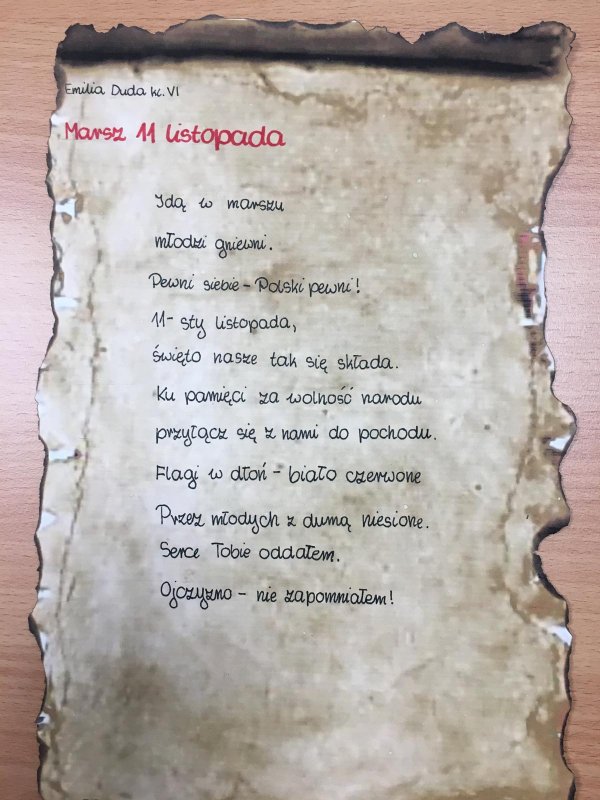 Emilia Duda kl. VI
Marsz 11 listopada
Idą w marszu
młodzi gniewni.
Pewni siebie - Polski pewni!
11-sty listopada,
święto nasze tak się składa.
Ku pamięci za wolność narodu
przyłącz się z nami do pochodu.
Flagi w dłoń - biało czerwone
Przez młodych z dumą niesione.
Serce Tobie oddałem.
Ojczyzno - nie zapomniałem!